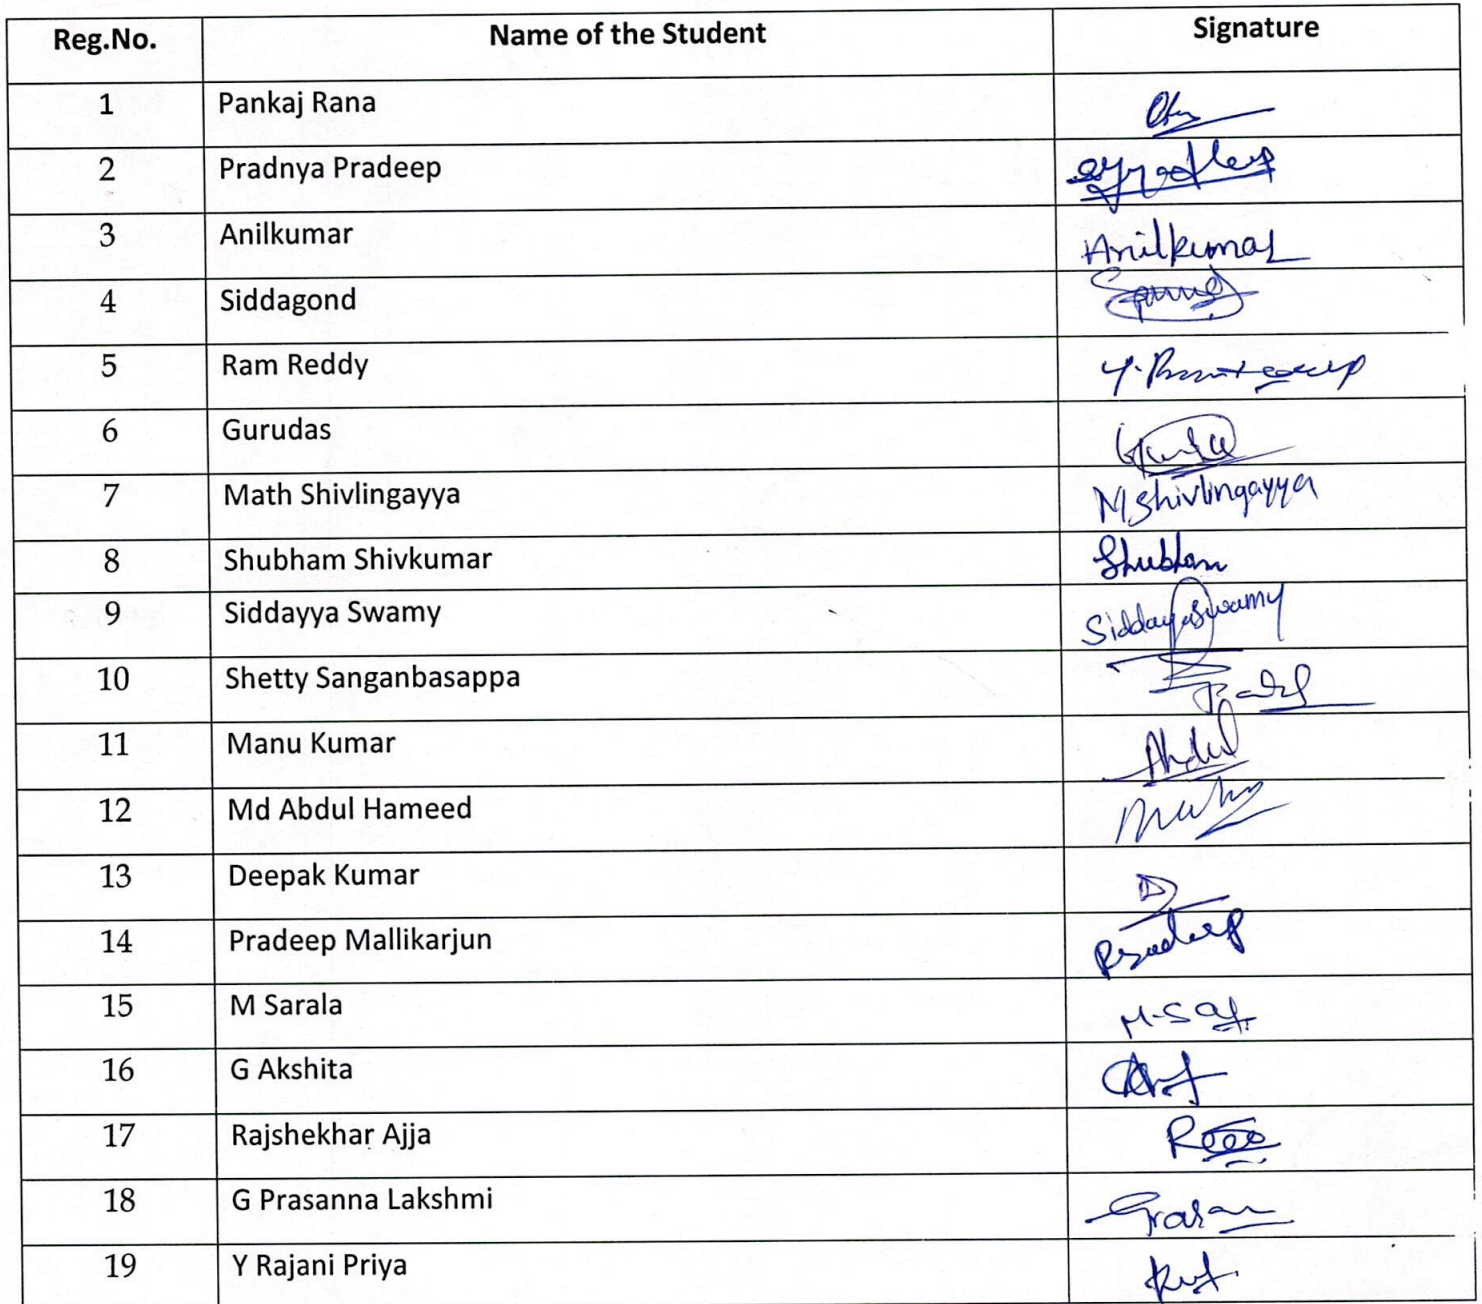 Reg.No. Name of the Student Signature
1 Pankaj Rana
2 Pradnya Pradeep
3 Anilkumar Anilkumar
4 Siddagond
5 Ram Reddy
6 Gurudas
7 Math Shivlingayya M Shivlingayya
8 Shubham Shivkumar Shubham
9 Siddayya Swamy Siddayaswamy
10 Shetty Sanganbasappa
11 Manu Kumar Abdul
12 Md Abdul Hameed
13 Deepak Kumar D
14 Pradeep Mallikarjun Pradeep
15 M Sarala
16 G Akshita
17 Rajshekhar Ajja
18 G Prasanna Lakshmi
19 Y Rajani Priya